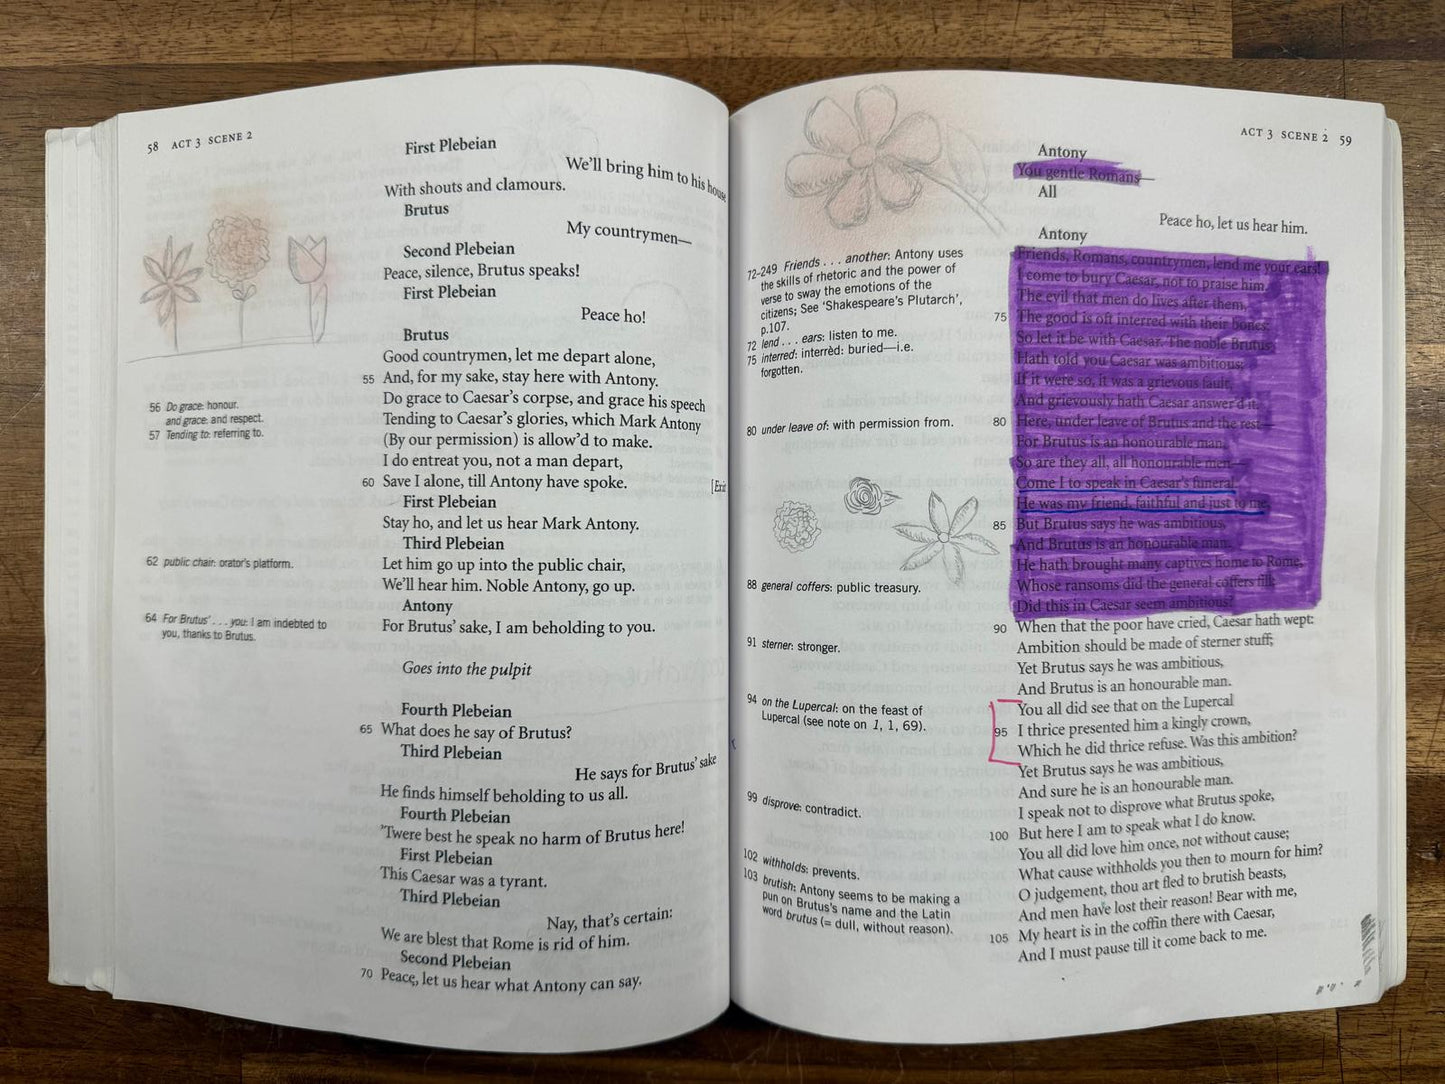 58 ACT 3 SCENE 2
First Plebeian
We'll bring him to his house
With shouts and clamours.
Brutus
My countrymen—
Second Plebeian
Peace, silence, Brutus speaks!
First Plebeian
Peace ho!
Brutus
Good countrymen, let me depart alone,
55 And, for my sake, stay here with Antony.
Do grace to Caesar's corpse, and grace his speech
Tending to Caesar's glories, which Mark Antony
(By our permission) is allow'd to make.
I do entreat you, not a man depart,
60 Save I alone, till Antony have spoke.
[Exit
First Plebeian
Stay ho, and let us hear Mark Antony.
Third Plebeian
Let him go up into the public chair,
We'll hear him. Noble Antony, go up.
Antony
For Brutus' sake, I am beholding to you.
Goes into the pulpit
Fourth Plebeian
65 What does he say of Brutus?
Third Plebeian
He says for Brutus' sake
He finds himself beholding to us all.
Fourth Plebeian
'Twere best he speak no harm of Brutus here!
First Plebeian
This Caesar was a tyrant.
Third Plebeian
Nay, that's certain:
We are blest that Rome is rid of him.
Second Plebeian
70 Peace, let us hear what Antony can say.
56 Do grace: honour.
and grace: and respect.
57 Tending to: referring to.
62 public chair: orator's platform.
64 For Brutus' . . . you: I am indebted to
you, thanks to Brutus.
ACT 3 SCENE 2 59
Antony
You gentle Romans—
All
Peace ho, let us hear him.
Antony
Friends, Romans, countrymen, lend me your ears!
I come to bury Caesar, not to praise him.
The evil that men do lives after them,
75 The good is oft interred with their bones;
So let it be with Caesar. The noble Brutus
Hath told you Caesar was ambitious;
If it were so, it was a grievous fault,
And grievously hath Caesar answer'd it.
80 Here, under leave of Brutus and the rest—
For Brutus is an honourable man,
So are they all, all honourable men—
Come I to speak in Caesar's funeral.
He was my friend, faithful and just to me;
85 But Brutus says he was ambitious,
And Brutus is an honourable man.
He hath brought many captives home to Rome,
Whose ransoms did the general coffers fill;
Did this in Caesar seem ambitious?
90 When that the poor have cried, Caesar hath wept:
Ambition should be made of sterner stuff;
Yet Brutus says he was ambitious,
And Brutus is an honourable man.
You all did see that on the Lupercal
95 I thrice presented him a kingly crown,
Which he did thrice refuse. Was this ambition?
Yet Brutus says he was ambitious,
And sure he is an honourable man.
I speak not to disprove what Brutus spoke,
100 But here I am to speak what I do know.
You all did love him once, not without cause;
What cause withholds you then to mourn for him?
O judgement, thou art fled to brutish beasts,
And men have lost their reason! Bear with me,
105 My heart is in the coffin there with Caesar,
And I must pause till it come back to me.
72–249 Friends . . . another: Antony uses
the skills of rhetoric and the power of
verse to sway the emotions of the
citizens; See 'Shakespeare's Plutarch',
p.107.
72 lend . . . ears: listen to me.
75 interred: interrèd: buried—i.e.
forgotten.
80 under leave of: with permission from.
88 general coffers: public treasury.
91 sterner: stronger.
94 on the Lupercal: on the feast of
Lupercal (see note on 1, 1, 69).
99 disprove: contradict.
102 withholds: prevents.
103 brutish: Antony seems to be making a
pun on Brutus's name and the Latin
word brutus (= dull, without reason).